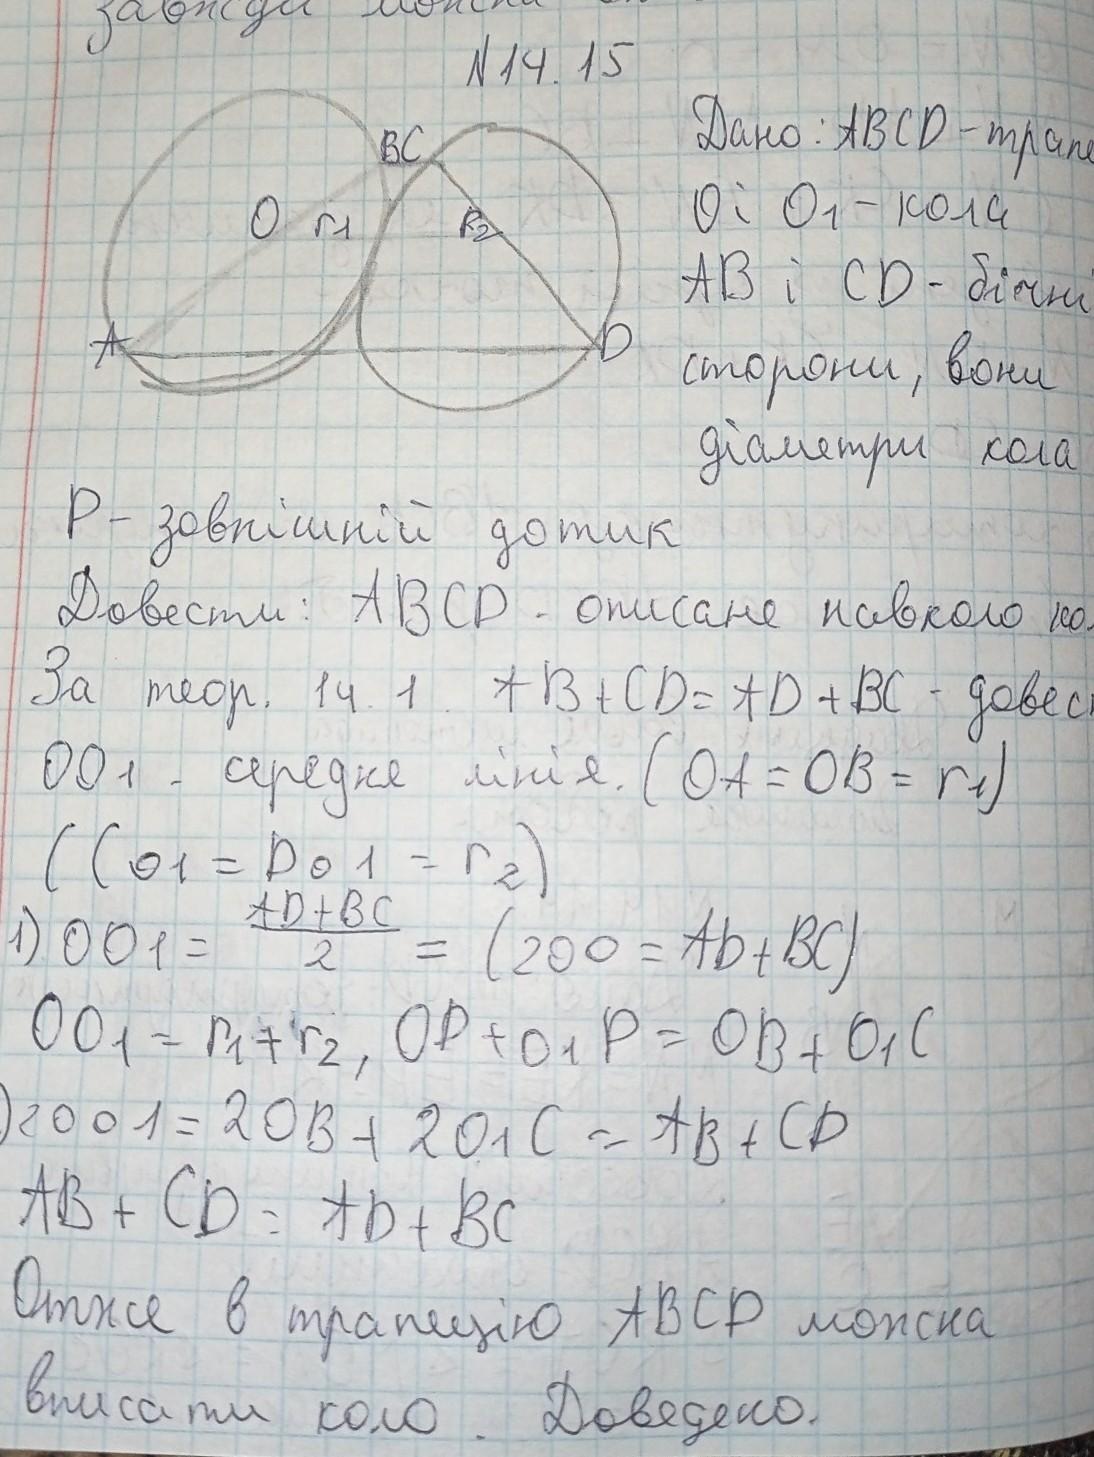 завжди можна
N14.15
BC
O r1
R2
A
D
Дано: ABCD - трапе
O і O1 - кола
AB і CD - бічні
сторони, вони
діаметри кола
P - зовнішній дотик
Довести: ABCD - описане навколо ко
За теор. 14.1. AB+CD=AD+BC - довес
OO1 - середня лінія. (OA=OB=r1)
((O1=DO1=r2)
1) OO1 = AD+BC/2 = (2OO=AD+BC)
OO1=r1+r2, OP+O1P=OB+O1C
)2OO1=2OB+2O1C=AB+CD
AB+CD=AD+BC
Отже в трапецію ABCD можна
вписати коло. Доведено.